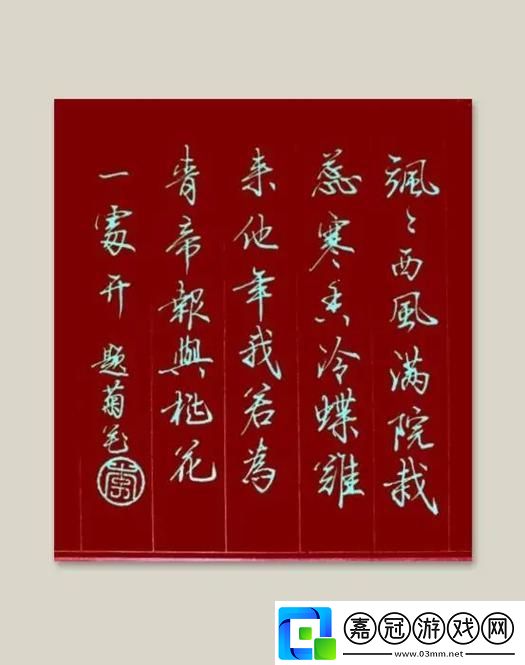 飒〻西風满院栽
蕊寒香冷蝶難
来他年我若為
青帝報與桃花
一處开 题菊花
嘉冠游戏网
www.03mm.net